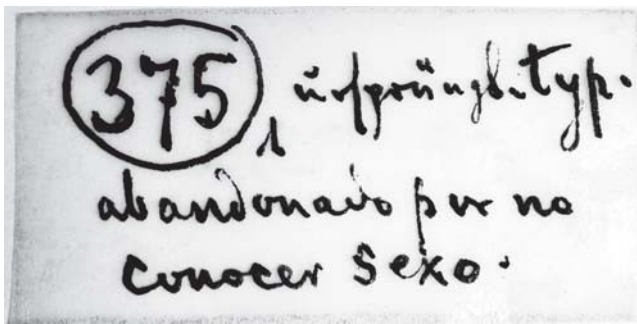 375 1 ursprüngl. typ.
abandonado por no
conocer Sexo.